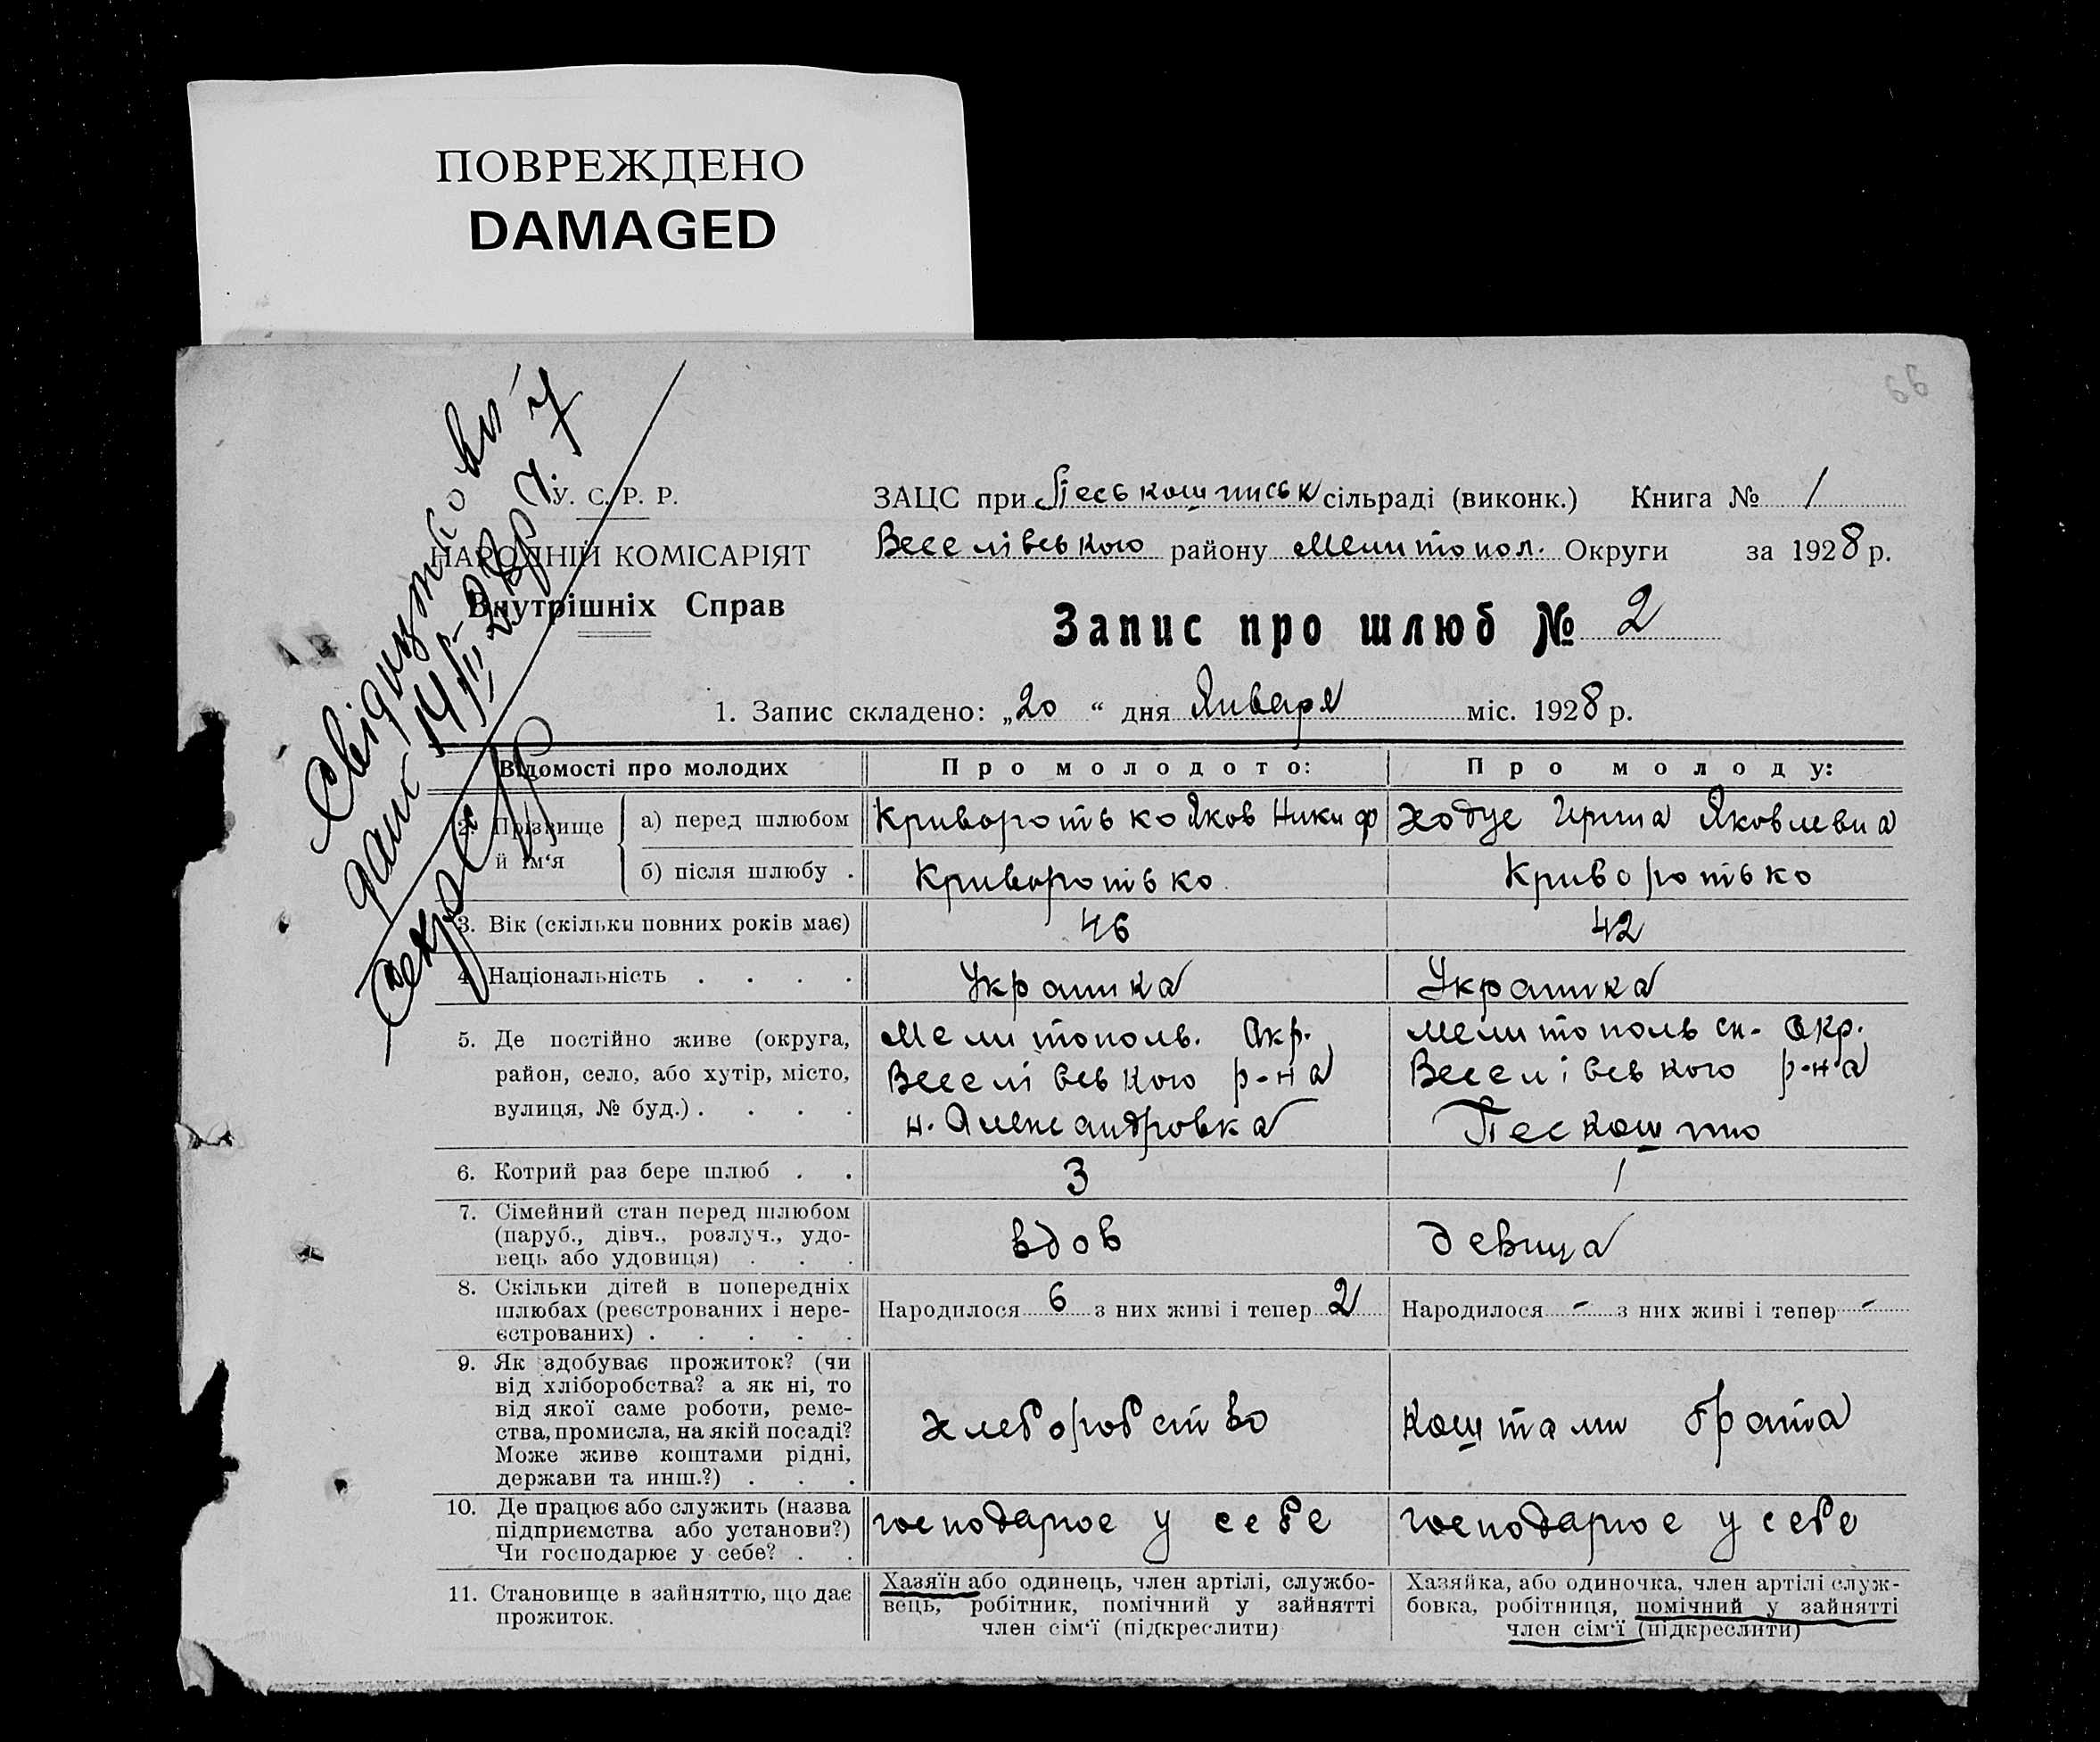 ПОВРЕЖДЕНО
DAMAGED
66
У. С. Р. Р.
НАРОДНІЙ КОМІСАРІЯТ
Внутрішніх Справ
ЗАЦС при Песькошинськ сільраді (виконк.) Книга № 1
Веселівського району Мелитопол. Округи за 1928 р.
Запис про шлюб № 2
1. Запис складено: „20 “ дня Января міс. 1928 р.
Відомості про молодих Про молодого: Про молоду:
2. Прізвище й ім‘я
а) перед шлюбом Криворотько Яков Никиф Ходус Ирина Яковлевна
б) після шлюбу . Криворотько Криворотько
3. Вік (скільки повних років має) 46 42
4. Національність . . . . Украинка Украинка
5. Де постійно живе (округа, Мелитополь. Окр. Мелитопольск. Окр.
район, село, або хутір, місто, Веселівського р-на Веселівського р-на
вулиця, № буд.) . . . . н. Александровка Пескошино
6. Котрий раз бере шлюб . . 3 1
7. Сімейний стан перед шлюбом
(паруб., дівч., розлуч., удо-
вець або удовиця) . . . вдов девица
8. Скільки дітей в попередніх
шлюбах (реєстрованих і нере-
єстрованих) . . . . .
Народилося 6 з них живі і тепер 2 Народилося - з них живі і тепер -
9. Як здобуває прожиток? (чи
від хліборобства? а як ні, то
від якої саме роботи, реме-
ства, промисла, на якій посаді?
Може живе коштами рідні,
держави та инш.?) . . .
хлеборобство коштами брата
10. Де працює або служить (назва
підприємства або установи?)
Чи господарює у себе? . .
господарює у себе господарює у себе
11. Становище в зайняттю, що дає
прожиток.
Хазяїн або одинець, член артілі, службо-
вець, робітник, помічний у зайнятті
член сім‘ї (підкреслити)
Хазяйка, або одиночка, член артілі служ-
бовка, робітниця, помічний у зайнятті
член сім‘ї (підкреслити)